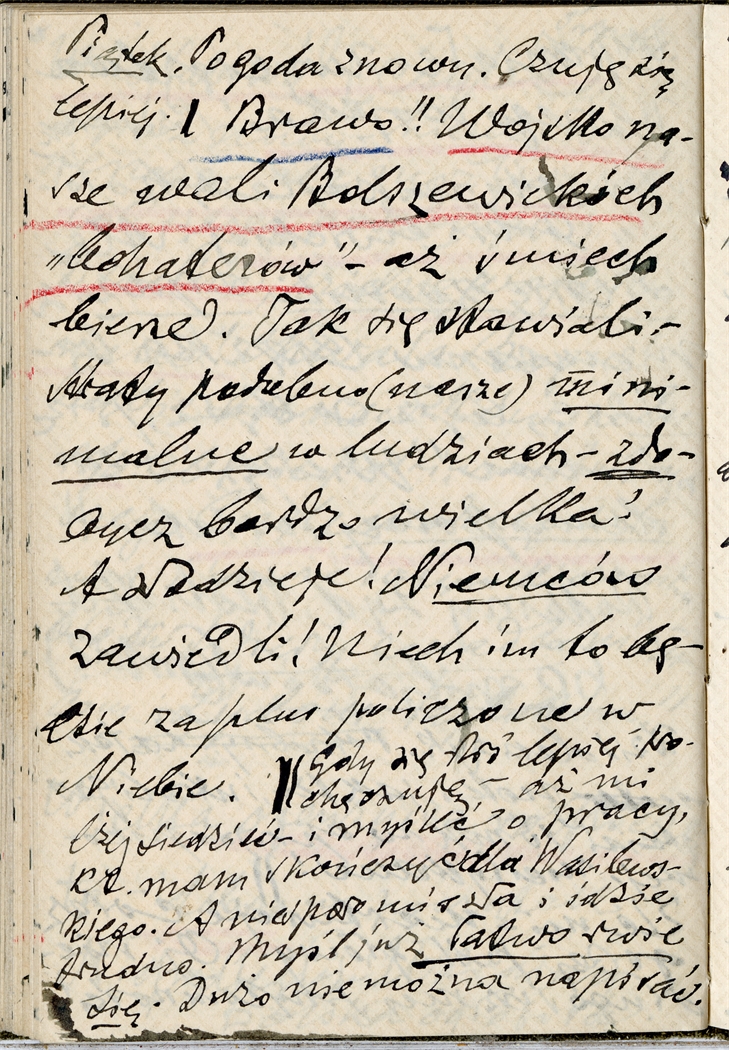 Piątek. Pogoda znowu. Czuję się
lepiej. | Brawo!! Wojsko na-
sze wali Bolszewickich
„bohaterów” – aż śmiech
bierze. Tak się stawiali –
straty podobno (nasze) mini-
malne w ludziach – zdo-
bycz bardzo wielka!
A złodzieje! Niemców
zawiedli! Niech im to bę-
dzie za plus policzone w
Niebie. || Gdy się ktoś lepiej tro-
chę czuję – aż mi
lżej siedzieć – i myśleć o pracy,
kt. mam skończyć dla Wasilews-
kiego. A i idzie
trudno. Myśl już łatwo rwie
się. Dużo nie można napisać.